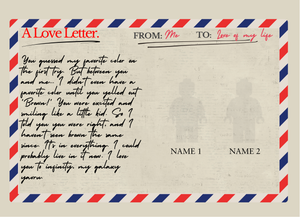 A Love Letter.
FROM: Me TO: Love of my life
You guessed my favorite color on
the first try. But between you
and me.. I didn't even have a
favorite color until you yelled out
"Brown!" You were excited and
smiling like a little kid. So I
told you you were right, and I
haven't seen brown the same
since. It's in everything. I could
probably live in it now. I love
you to infinity, my galaxy
yearn.
NAME 1 NAME 2